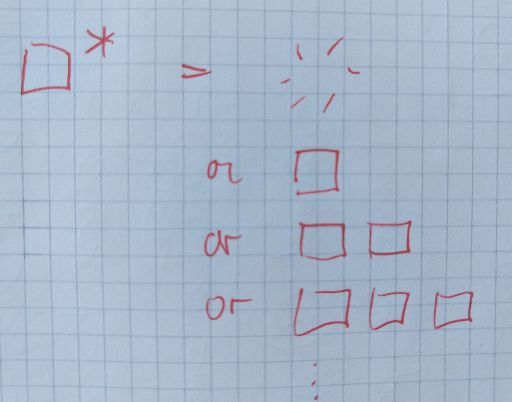 □* =
or □
or □ □
or □ □ □
⋮